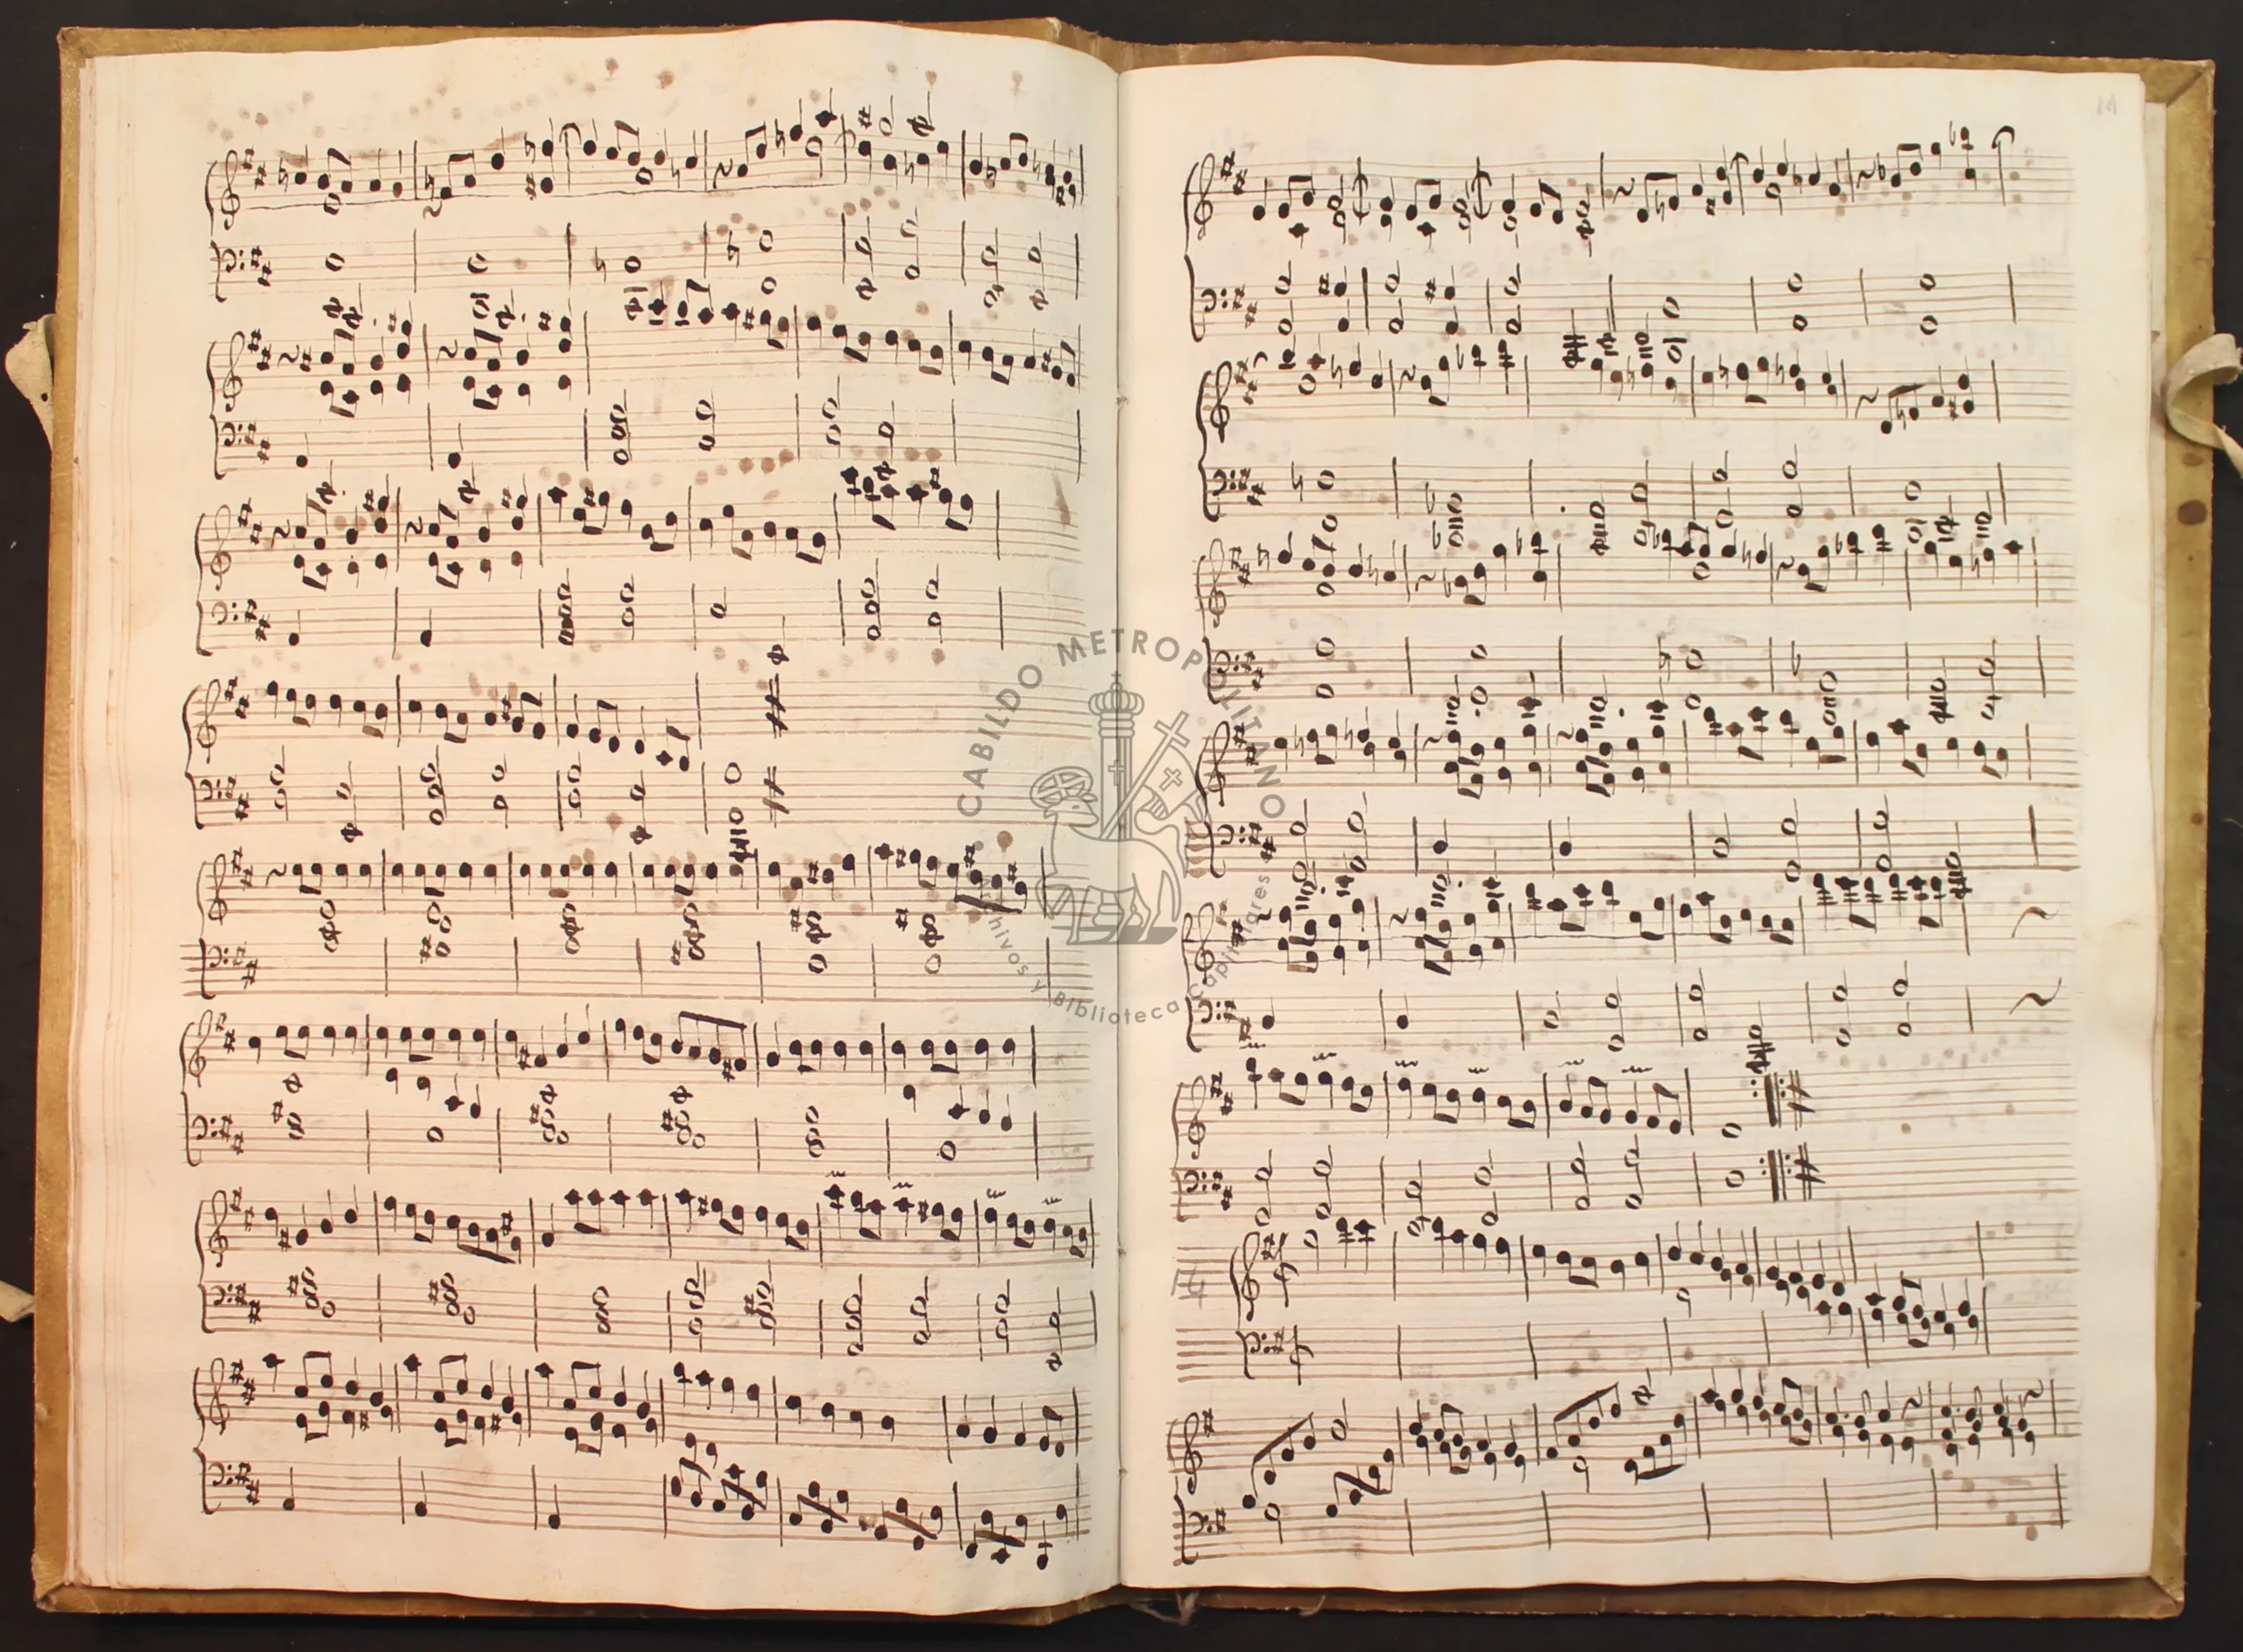 14
CABILDO METROPOLITANO
Archivos y Biblioteca Capitulares